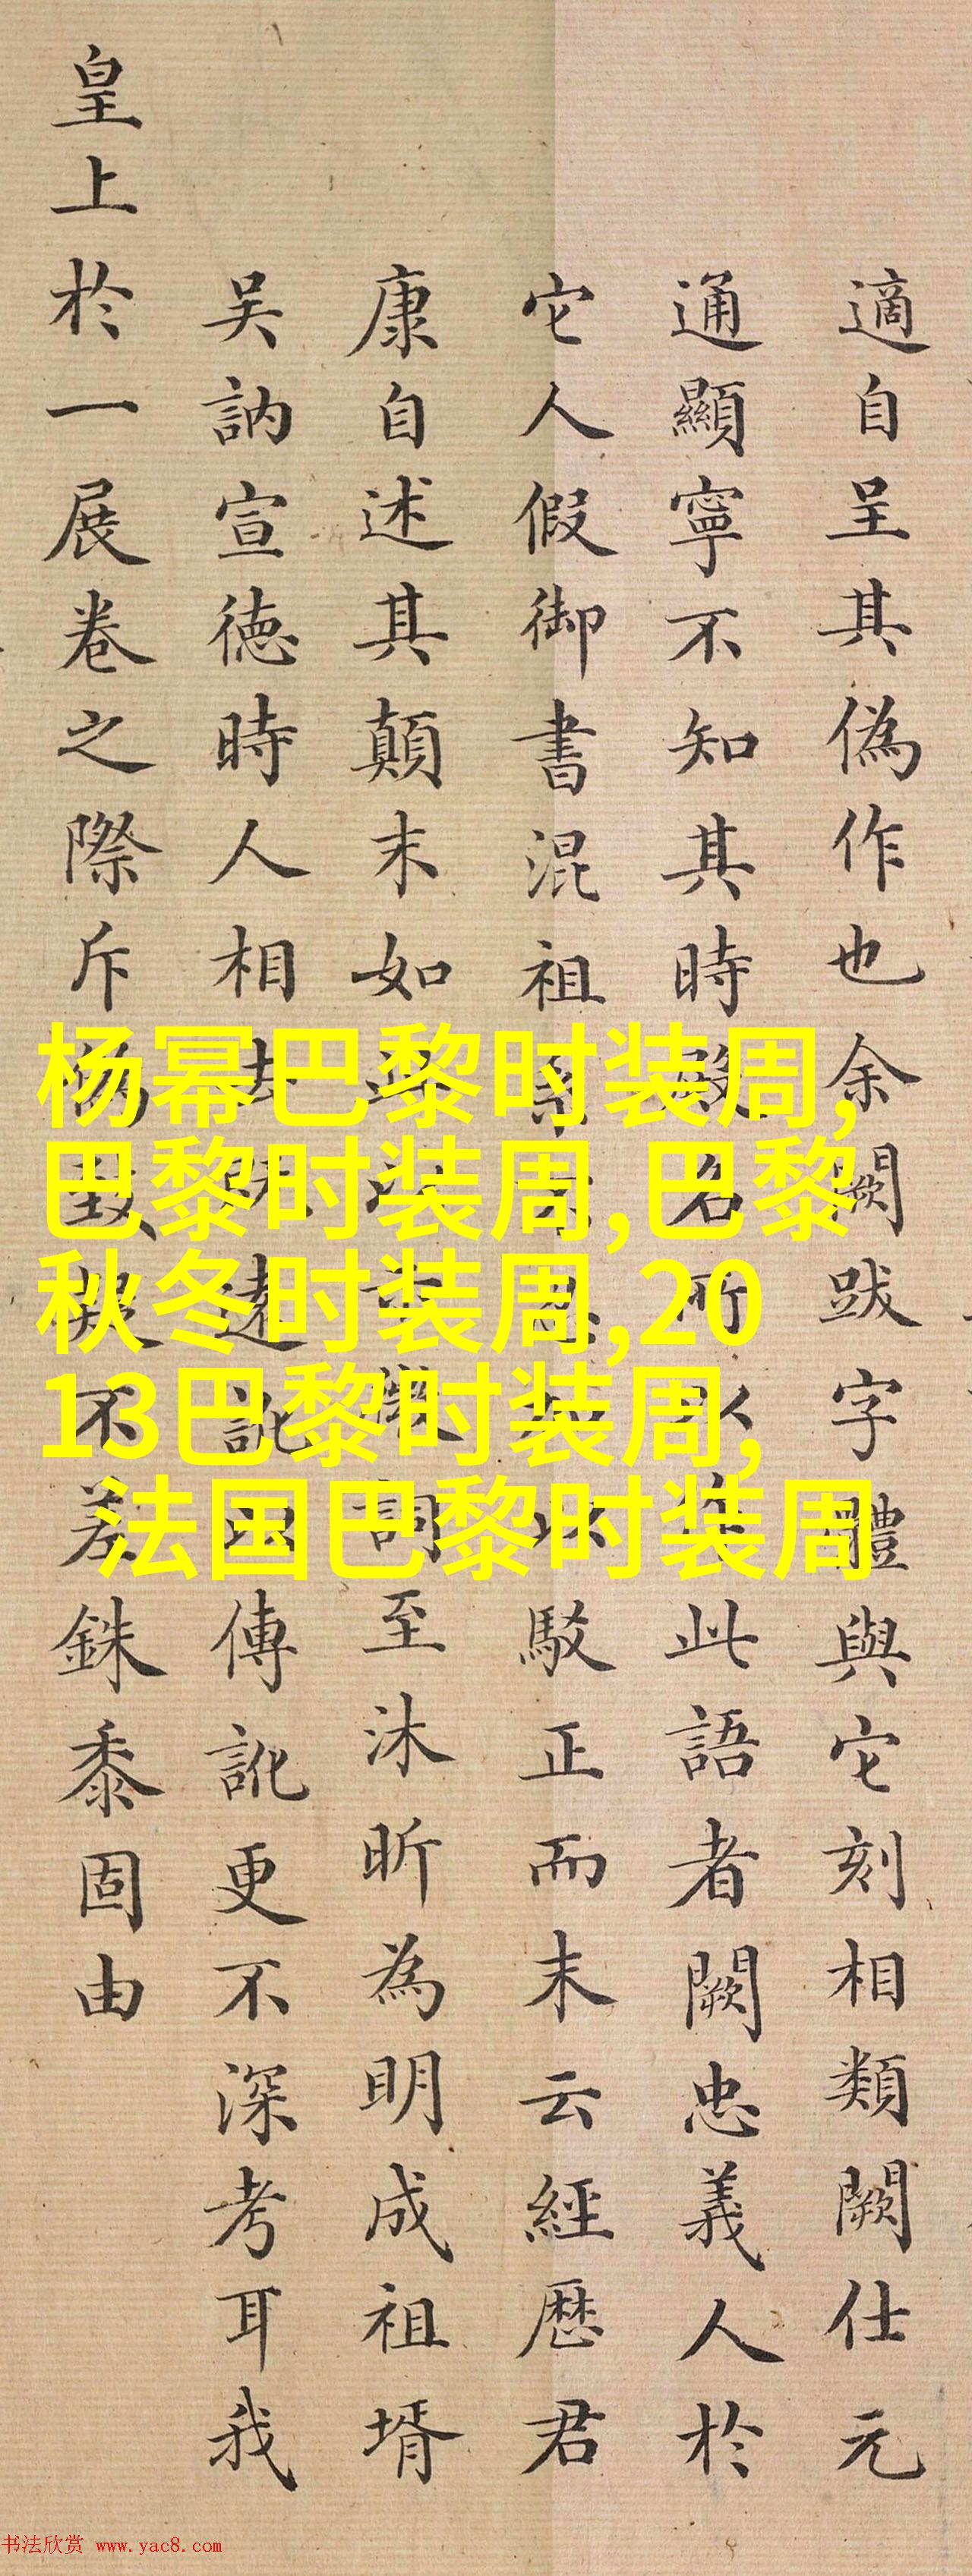 適自呈其偽作也余闕跋字體與它刻相類闕仕元
通顯寧不知其時殿名所以此語者闕忠義人於
它人假御書混祖駁正而末云經歴君
康自述其顛末如詞至沐昕為明成祖壻
吴訥宣徳時人相去遠訛傳訛更不深考耳我
皇上於一展卷之際斥偽不差銖黍固由
杨幂巴黎时装周,
巴黎时装周,巴黎
秋冬时装周,20
13巴黎时装周,
法国巴黎时装周
书法欣赏 www.yac8.com